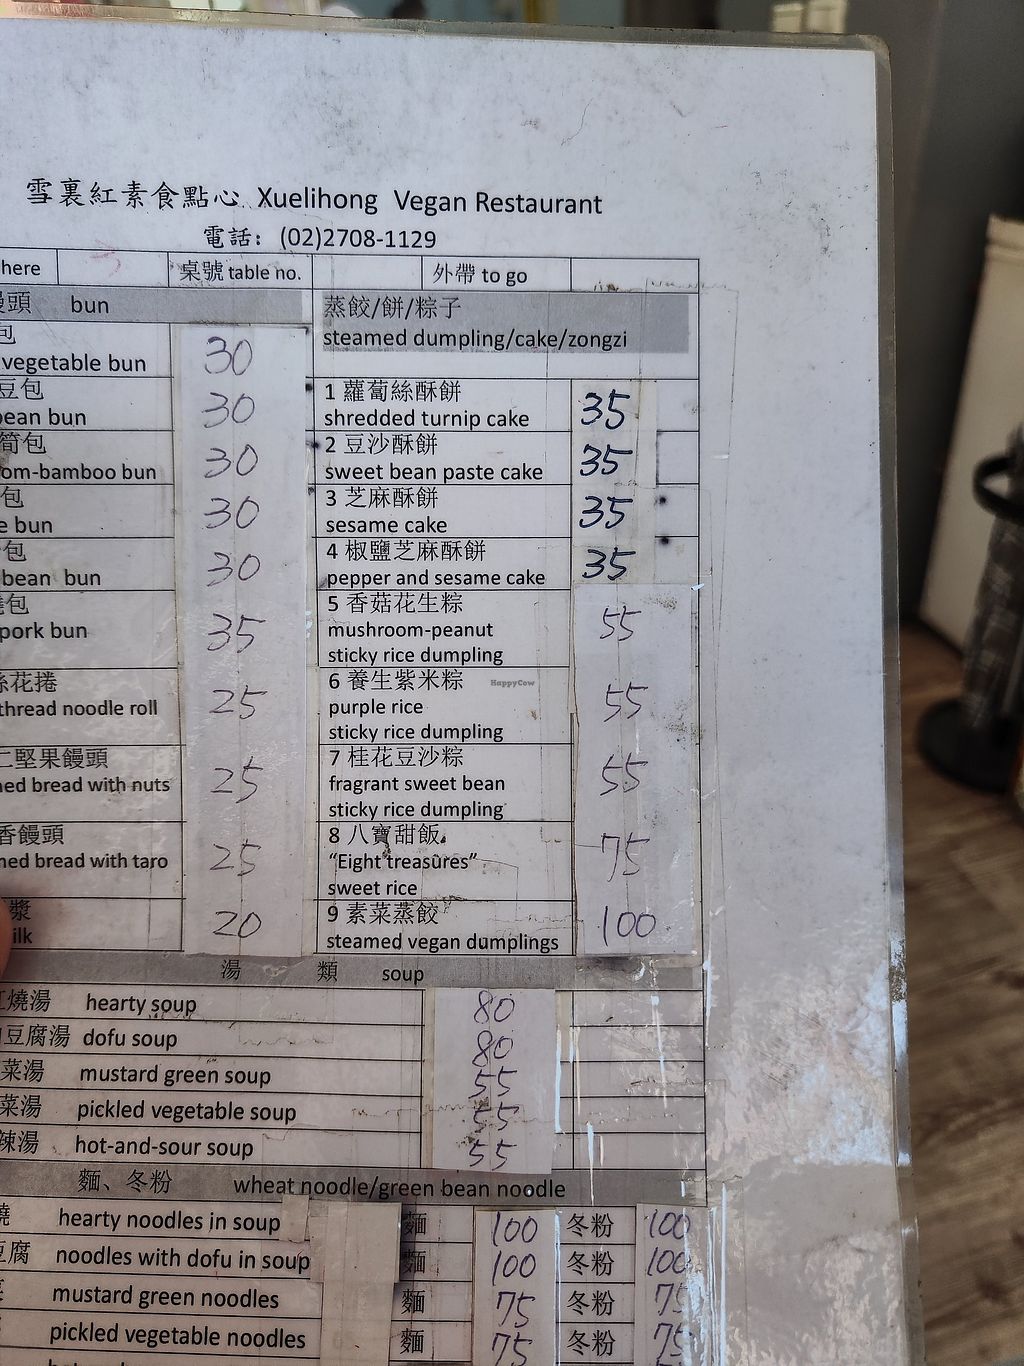 雪裏紅素食點心 Xuelihong Vegan Restaurant
電話: (02)2708-1129
here 桌號 table no. 外帶 to go
頭 bun
包
vegetable bun 30
豆包
bean bun 30
筍包
om-bamboo bun 30
包
e bun 30
包
bean bun 30
包
pork bun 35
花捲
thread noodle roll 25
堅果饅頭
ned bread with nuts 25
香饅頭
ned bread with taro 25
漿
ilk 20
蒸餃/餅/粽子
steamed dumpling/cake/zongzi
1 蘿蔔絲酥餅
shredded turnip cake 35
2 豆沙酥餅
sweet bean paste cake 35
3 芝麻酥餅
sesame cake 35
4 椒鹽芝麻酥餅
pepper and sesame cake 35
5 香菇花生粽
mushroom-peanut 55
sticky rice dumpling
6 養生紫米粽
purple rice 55
sticky rice dumpling
7 桂花豆沙粽
fragrant sweet bean 55
sticky rice dumpling
8 八寶甜飯
"Eight treasures" 75
sweet rice
9 素菜蒸餃
steamed vegan dumplings 100
HappyCow
湯 類 soup
燒湯 hearty soup 80
豆腐湯 dofu soup 80
菜湯 mustard green soup 55
菜湯 pickled vegetable soup 55
辣湯 hot-and-sour soup 55
麵、冬粉 wheat noodle/green bean noodle
燒 hearty noodles in soup 麵 100 冬粉 100
豆腐 noodles with dofu in soup 麵 100 冬粉 100
mustard green noodles 麵 75 冬粉 75
pickled vegetable noodles 麵 75 冬粉 75